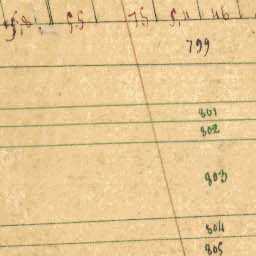 5,8, 5,5 7,5 5,11 46
799
801
802
803
804
805